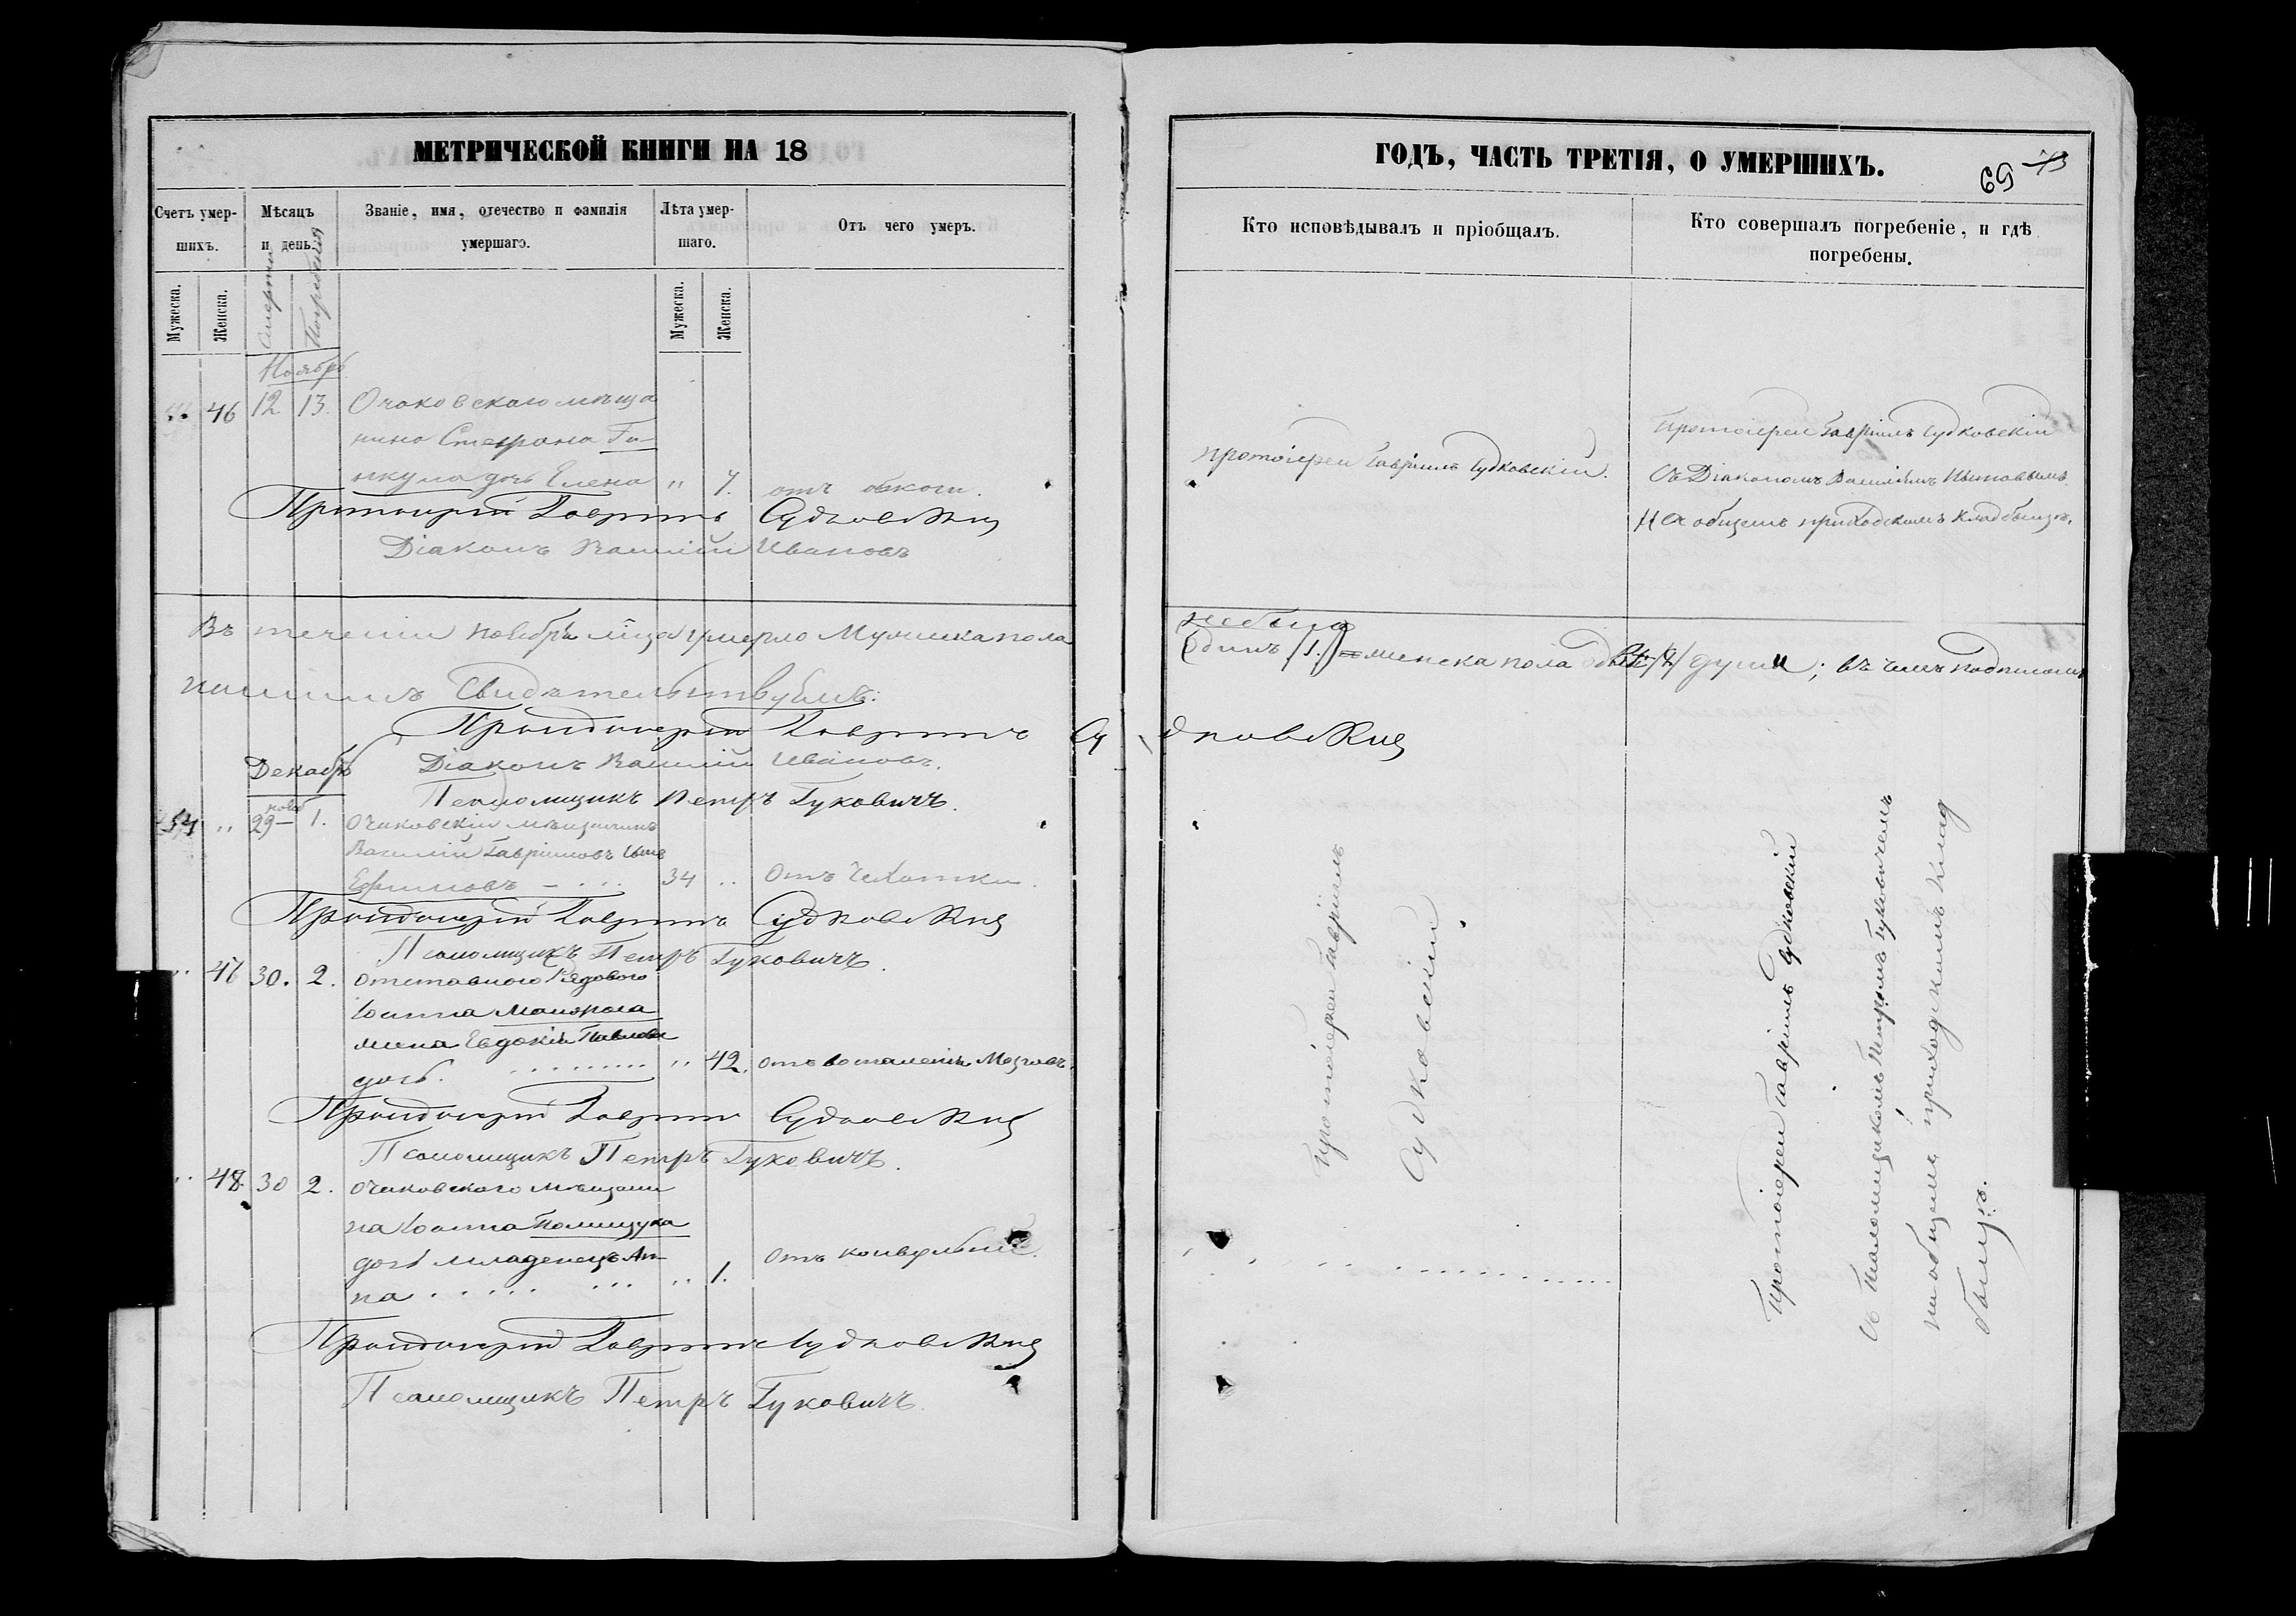 МЕТРИЧЕСКОЙ КНИГИ НА 18
ГОДЪ, ЧАСТЬ ТРЕТІЯ, О УМЕРШИХЪ.
59
Счетъ умер-
шихъ.
Мѣсяцъ
и день.
Званіе, имя, отечество и фамилія
умершаго.
Лѣта умер-
шаго.
Отъ чего умеръ.
Кто исповѣдывалъ и пріобщалъ.
Кто совершалъ погребеніе, и гдѣ
погребены.
Мужеска.
Женска.
Смерти
Погребенія
Мужеска.
Женска.
Ноябрь
46 12. 13. Очаковскаго мѣща
нина Стефана
дочь Елена " 7.
Протоіерей Гавріилъ Судковскій
Діаконъ Василій Ивановъ
протоіерей Гавріилъ Судковскій.
Протоіерей Гавріилъ Судковскій
Съ Діакономъ Василіемъ Ивановымъ
На общемъ приходскомъ кладбищѣ.
Въ теченіи ноября мѣсца умерло Мужеска пола
небыло
Одинъ /1./ женска пола душа; въ чемъ подписомъ
нашимъ Свидѣтельствуемъ:
Протоіерей Гавріилъ Судковскій
Діаконъ Василій Ивановъ.
Псаломщикъ Петръ Гуковичъ.
Декабрь
нояб
54 " 29– 1. Очаковскій мѣщанинъ
Василій Гавріиловъ сынъ
Ефимовъ – ... 34 .. Отъ Чахотки.
Протоіерей Гавріилъ Судковскій
Псаломщикъ Петръ Гуковичъ.
.. 47 30. 2. отставного Рядового
Іоанна
жена Евдокія Павлова
дочь. .......... " 42. отъ воспаленія Мозговъ.
Протоіерей Гавріилъ Судковскій
Псаломщикъ Петръ Гуковичъ.
.. 48. 30 2. очаковского мѣщани
на Іоанна Полищука
дочь младенецъ Ан
на ..... ... .. 1. Отъ конвульсій.
Протоіерей Гавріилъ Судковскій
Псаломщикъ Петръ Гуковичъ.
Протоіерей Гавріилъ
Судковскій
Протоіерей Гавріилъ Судковскій
съ Псаломщикомъ Петромъ Гуковичемъ
на общемъ приходскомъ клад
бищѣ.